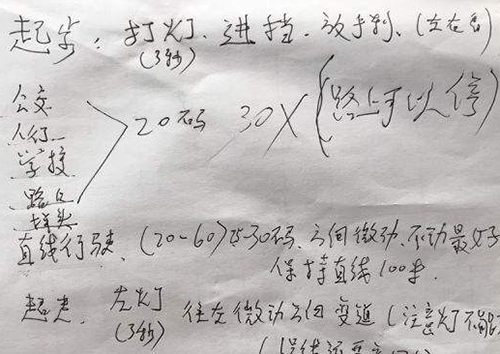 起步：打灯、进挡、放手刹、(左右看)
(3秒)
公交
人行
学校
路口
掉头
20码 30X (路上可以停)
直线行驶、(20-60) 25-30码、方向微动、不动最好
保持直线100米.
超车. 左灯 往左微动方向变道 (注意灯不能
(3秒)